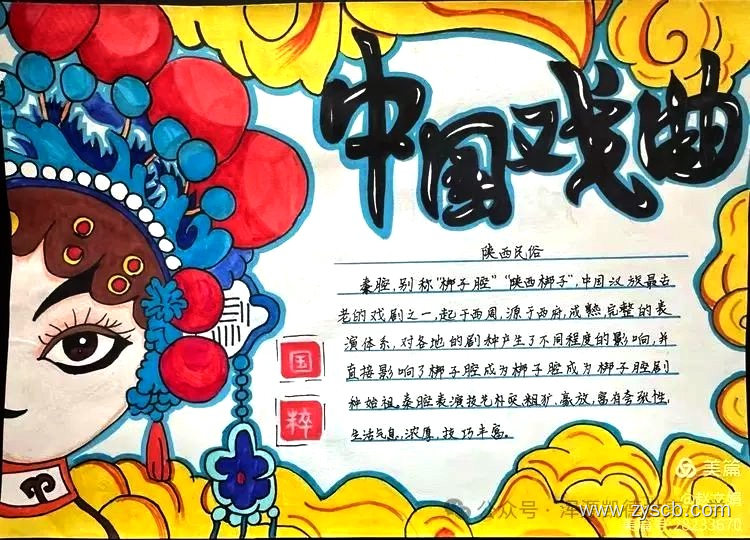 中国戏曲
陕西民俗
秦腔,别称"梆子腔""陕西梆子",中国汉族最古
老的戏剧之一,起于西周,源于西府,成熟完整的表
演体系,对各地的剧种产生了不同程度的影响,并
直接影响了梆子腔成为梆子腔成为梆子腔剧
种始祖,秦腔表演技艺朴实,粗犷、豪放,富有夸张性,
生活气息,浓厚,技巧丰富。
国
粹
美篇
公众号·浑源凯德
www.zyscb.com